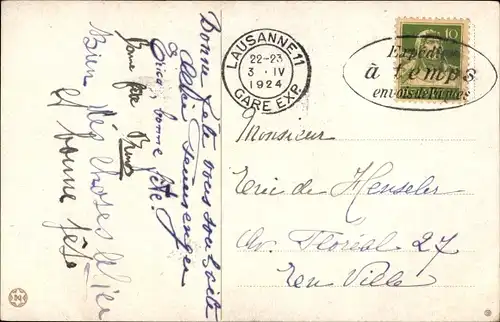 Bonne fête vous souhaite
Bonne fête
Bien des choses
et bonne fête
LAUSANNE 11
22-23
3 · IV
1924
GARE EXP.
10
Expédiez
à temps
envois de Pâques
Monsieur
Eric de Henseler
Av. Floréal 27
En Ville